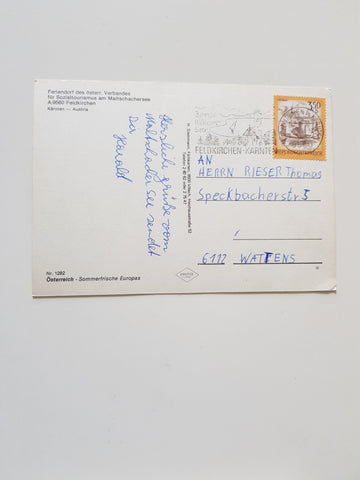 Feriendorf des österr. Verbandes
für Sozialtourismus am Maltschachersee
A-9560 Feldkirchen
Kärnten — Austria
Herzlich grüße vom
Maltschacher See sendet
Der Harald
350
REPUBLIK ÖSTERREICH
FELDKIRCHEN-KÄRNTEN
AN
HERRN RIESER Thomas
Speckbacherstr 5
6112 WATTENS
Nr. 1282
Österreich - Sommerfrische Europas